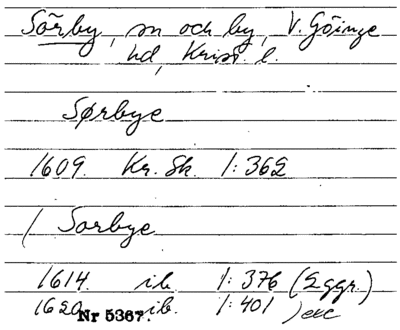 Sörby, sn och by, V. Göinge
hd, Krist. l.
Sørbye
1609. Kr. Sk. 1:362
( Sorbye
1614. ib. 1:376 (2 ggr.)
1620 ib. 1:401 ) etc
Nr 5367.